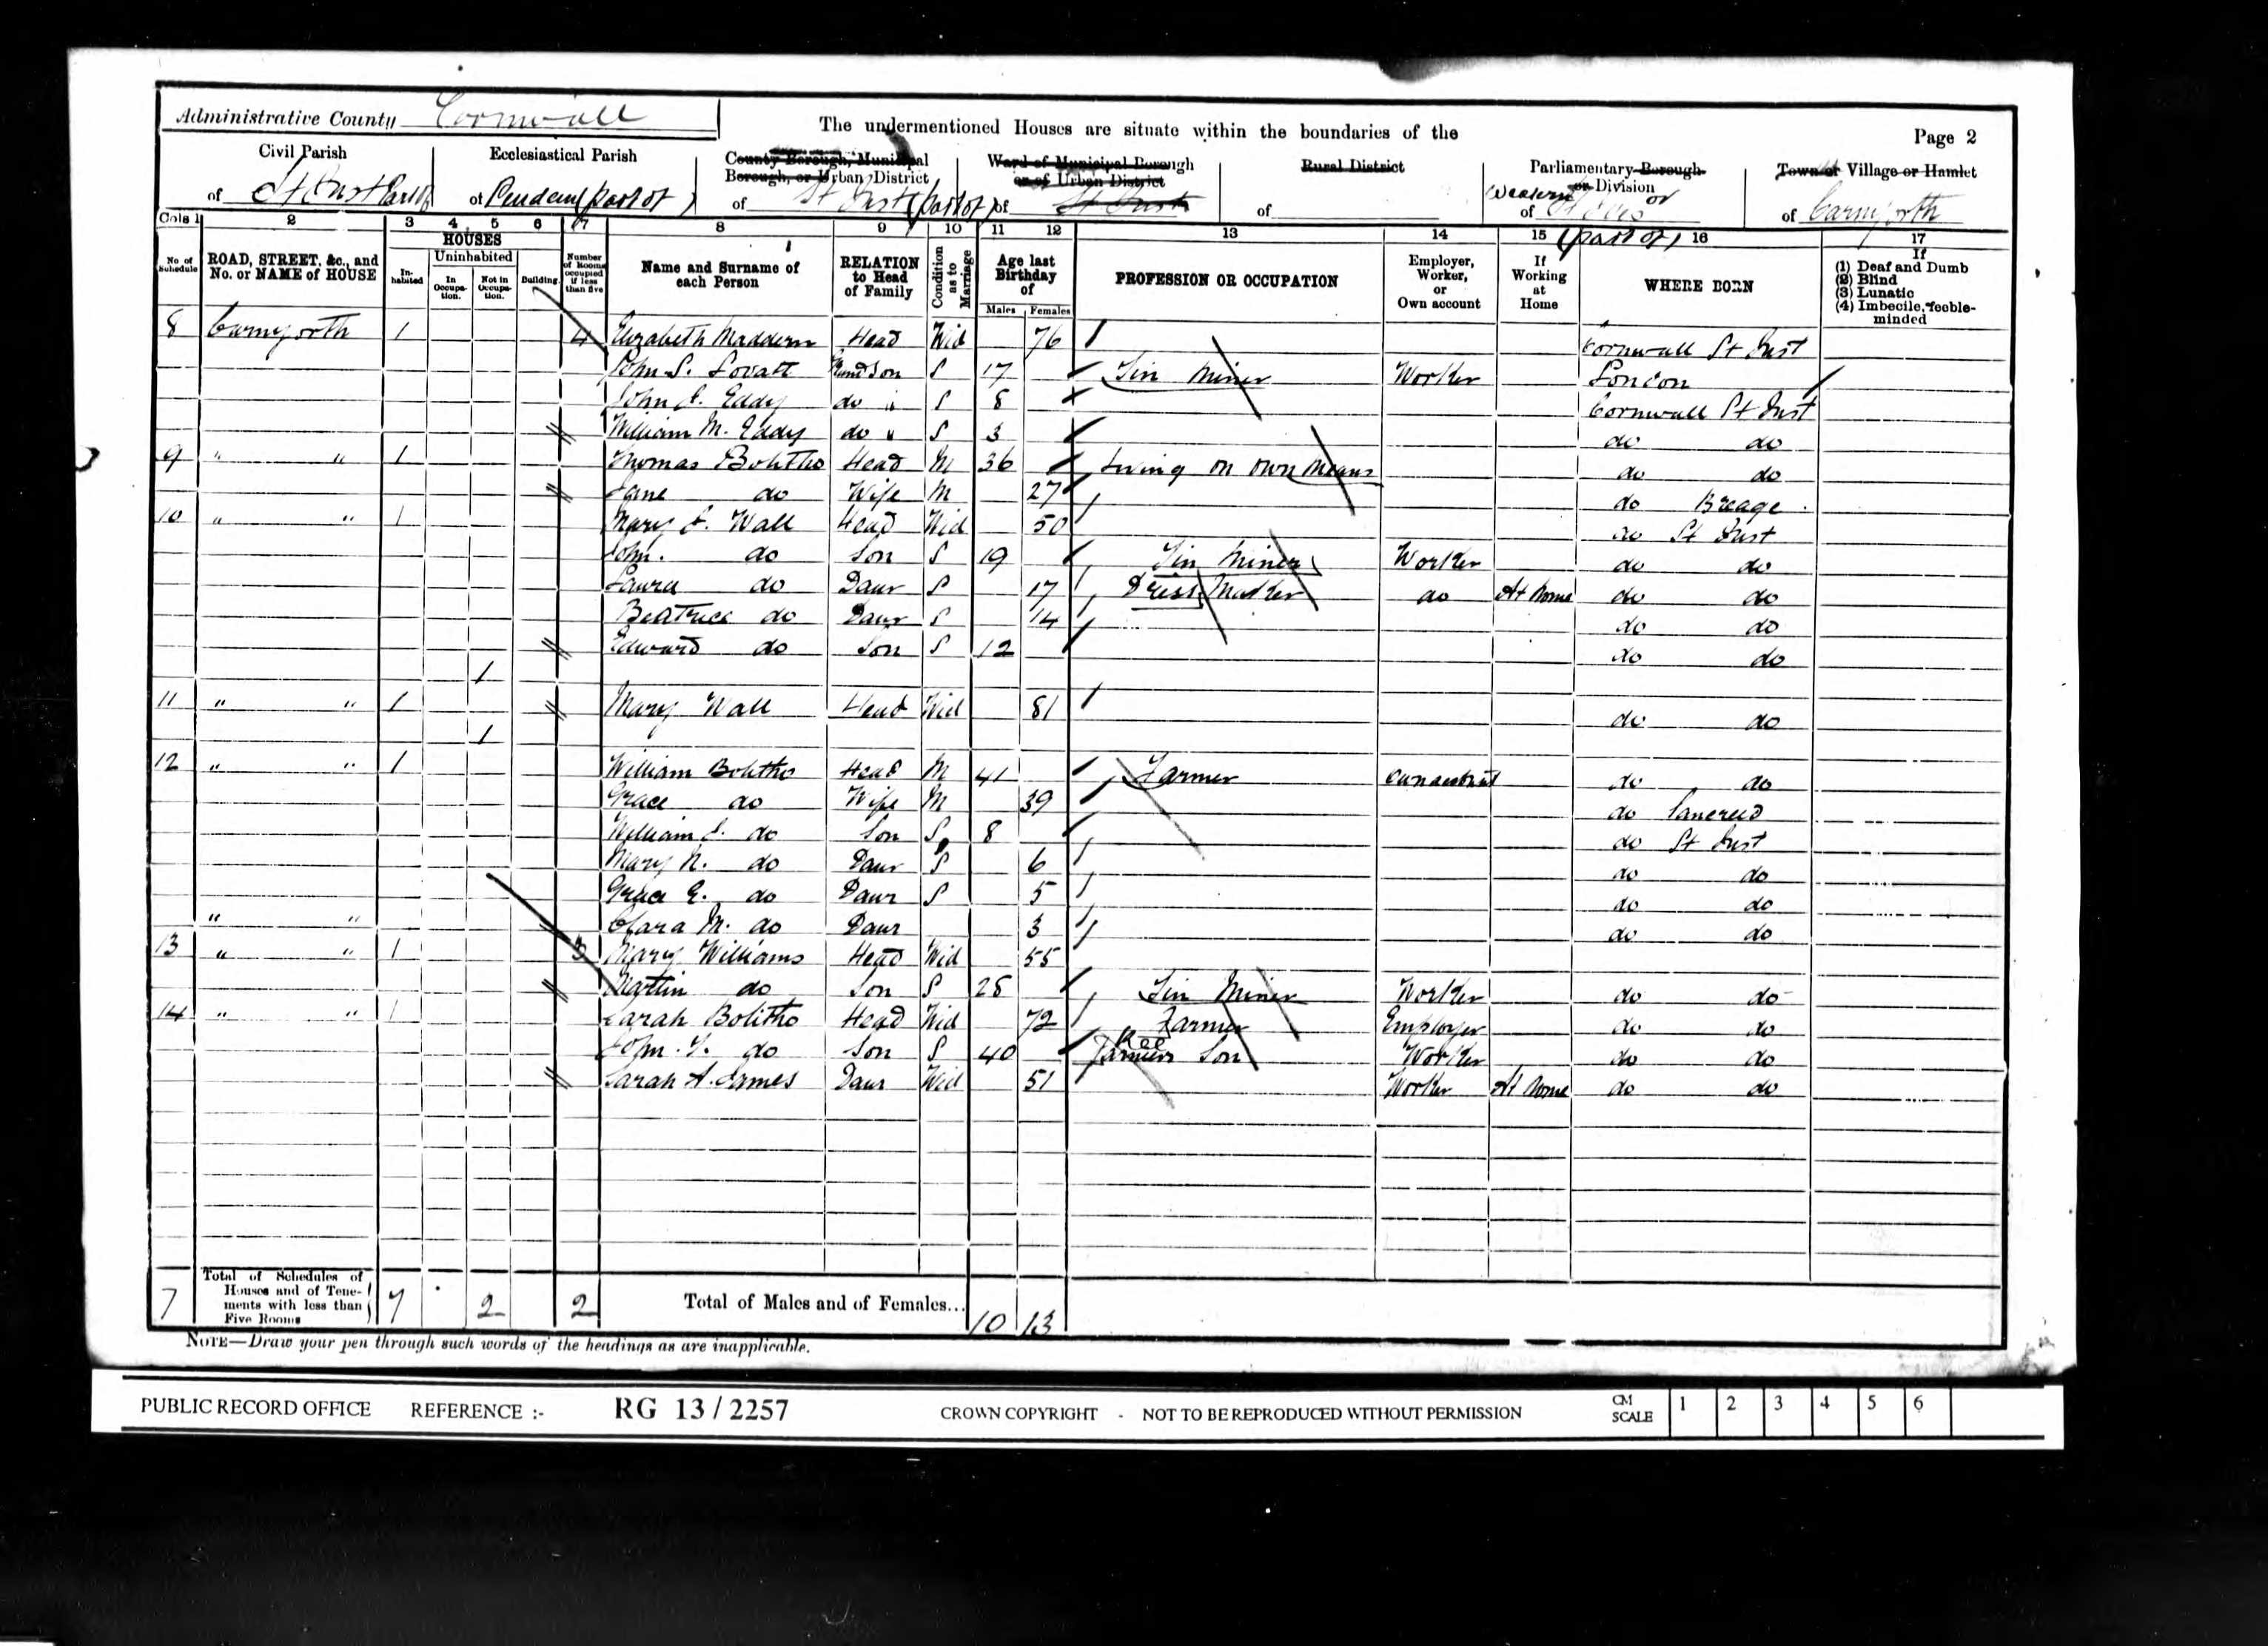 Administrative County Cornwall
The undermentioned Houses are situate within the boundaries of the
Page 2
Civil Parish of St Just Part of
Ecclesiastical Parish of Pendeen (part of)
County Borough, Municipal Borough, or Urban District of St Just (part of)
Ward of Municipal Borough or of Urban District of St Just
Rural District of
Parliamentary Borough or Division of Western or St Ives (part of)
Town or Village or Hamlet of Carnyorth
Cols 1 2 3 4 5 6 7 8 9 10 11 12 13 14 15 16 17
No. of Schedule
ROAD, STREET, &c., and No. or NAME of HOUSE
HOUSES
Inhabited
Uninhabited
In Occupation.
Not in Occupation.
Building.
Number of Rooms occupied if less than five
Name and Surname of each Person
RELATION to Head of Family
Condition as to Marriage
Age last Birthday of
Males Females
PROFESSION OR OCCUPATION
Employer, Worker, or Own account
If Working at Home
WHERE BORN
If
(1) Deaf and Dumb
(2) Blind
(3) Lunatic
(4) Imbecile, feeble-minded
8 Carnyorth 1 4 Elizabeth Maddern Head Wid 76 Cornwall St Just
John S. Lovatt Grandson S 17 Tin Miner Worker London
John J. Eddy do " S 8 Cornwall St Just
William M. Eddy do " S 3 do do
9 " " 1 Thomas Bolitho Head M 36 Living on own Means do do
Jane do Wife M 27 do Breage
10 " " 1 Mary J. Wall Head Wid 50 do St Just
John. do Son S 19 Tin Miner Worker do do
Laura do Daur S 17 Dress Maker do At home do do
Beatrice do Daur S 14 do do
Edward do Son S 12 do do
1
11 " " 1 Mary Wall Head Wid 81 do do
1
12 " " 1 William Bolitho Head M 41 Farmer own account do do
Grace do Wife M 39 do Sancreed
William J. do Son S 8 do St Just
Mary N. do Daur S 6 do do
Grace E. do Daur S 5 do do
" " Clara M. do Daur 3 do do
13 " " 1 3 Mary Williams Head Wid 55
Martin do Son S 28 Tin Miner Worker do do
14 " " 1 Sarah Bolitho Head Wid 72 Farmer Employer do do
John. T. do Son S 40 Farmers Son Worker do do
Sarah A. James Daur Wid 51 Worker At home do do
7 Total of Schedules of Houses and of Tenements with less than Five Rooms 7 2 2 Total of Males and of Females... 10 13
NOTE—Draw your pen through such words of the headings as are inapplicable.
PUBLIC RECORD OFFICE REFERENCE :- RG 13/2257 CROWN COPYRIGHT - NOT TO BE REPRODUCED WITHOUT PERMISSION CM SCALE 1 2 3 4 5 6